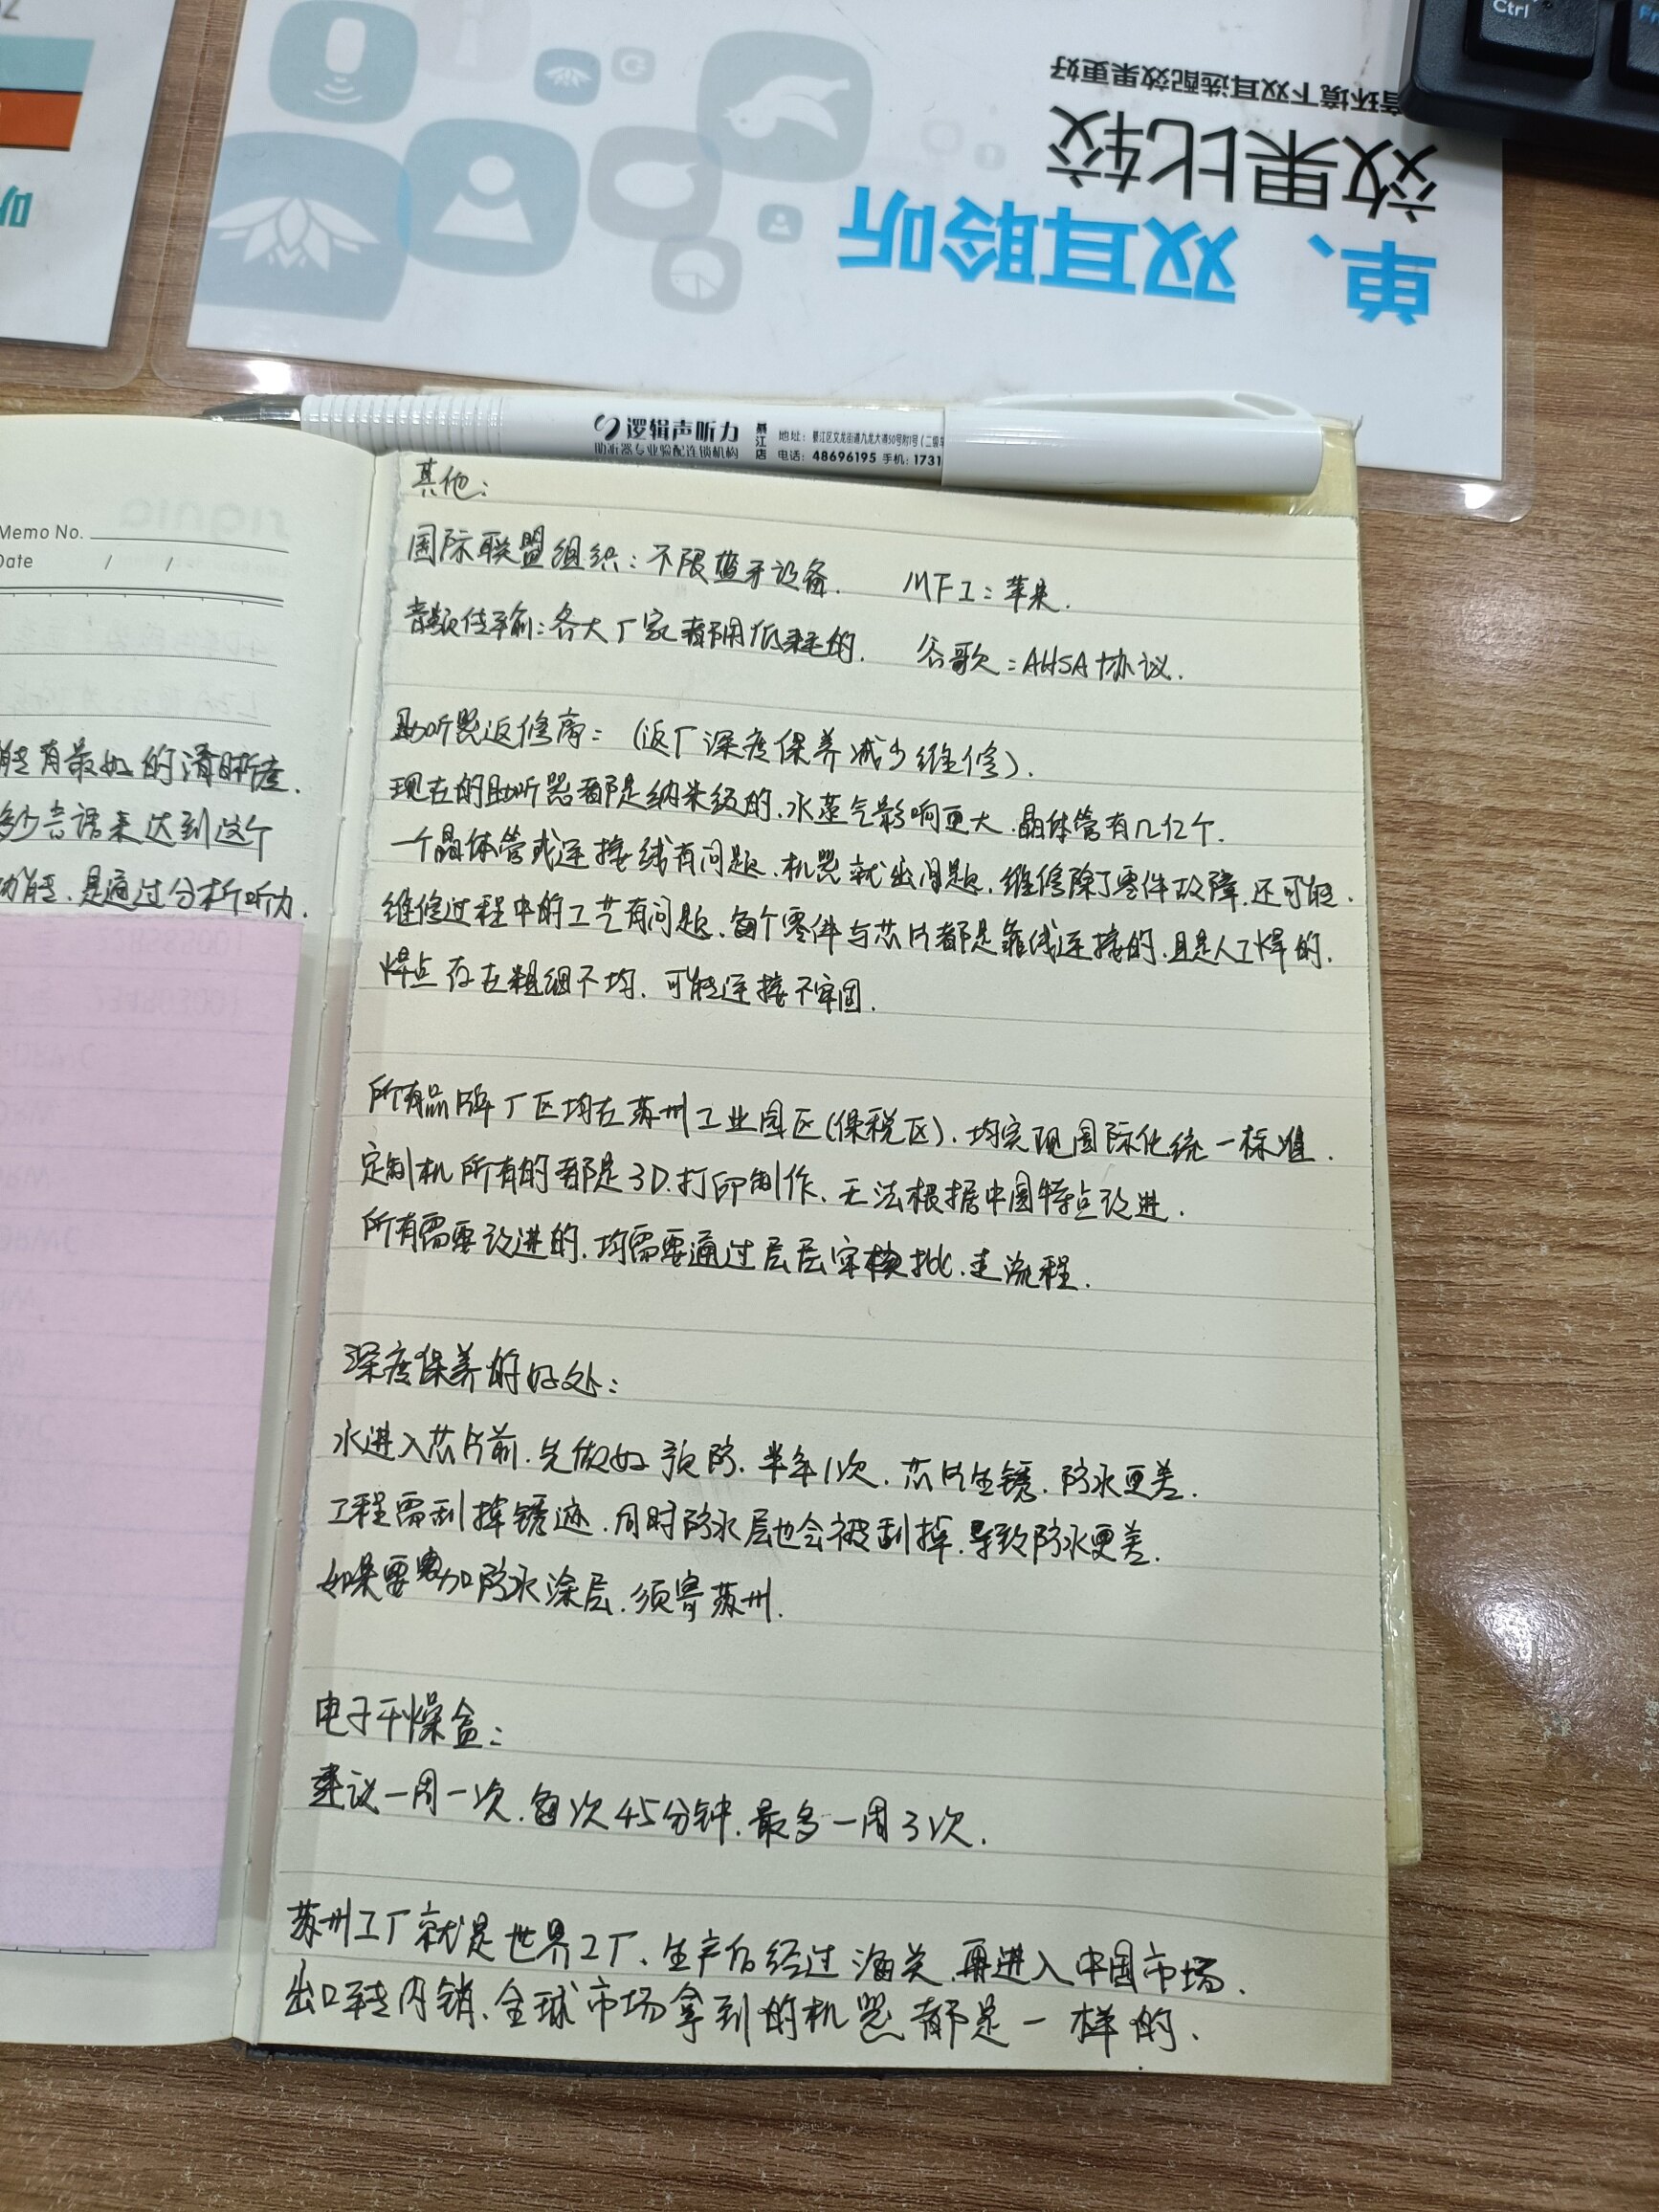 Ctrl
单、双耳聆听
效果比较
音环境下双耳选配效果更好
听
逻辑声听力
助听器专业验配连锁机构
綦江店
地址：綦江区文龙街道九龙大道50号附1号（二级车
电话：48696195 手机：1731
Memo No.
Date / /
能有最好的清晰度.
多少言语来达到这个
功能.是通过分析听力.
其他：
国际联盟组织：不限蓝牙设备. MFI：苹果.
音频传输：各大厂家都用低耗的. 谷歌：AHSA协议.
助听器返修高：（返厂深度保养减少维修）.
现在的助听器都是纳米级的.水蒸气影响更大.晶体管有几亿个.
一个晶体管或连接线有问题.机器就出问题.维修除了零件故障.还可能.
维修过程中的工艺有问题.每个零件与芯片都是靠线连接的.且是人工焊的.
焊点存在粗细不均.可能连接不牢固.
所有品牌厂区均在苏州工业园区(保税区).均实现国际化统一标准.
定制机所有的都是3D打印制作.无法根据中国特点改进.
所有需要改进的.均需要通过层层审核批.走流程.
深度保养的好处：
水进入芯片前.先做好预防.半年1次.芯片生锈.防水更差.
工程需刮掉锈迹.同时防水层也会被刮掉.导致防水更差.
如果要加防水涂层.须寄苏州.
电子干燥盒：
建议一周一次.每次45分钟.最多一周3次.
苏州工厂就是世界工厂、生产后经过海关.再进入中国市场.
出口转内销.全球市场拿到的机器都是一样的.